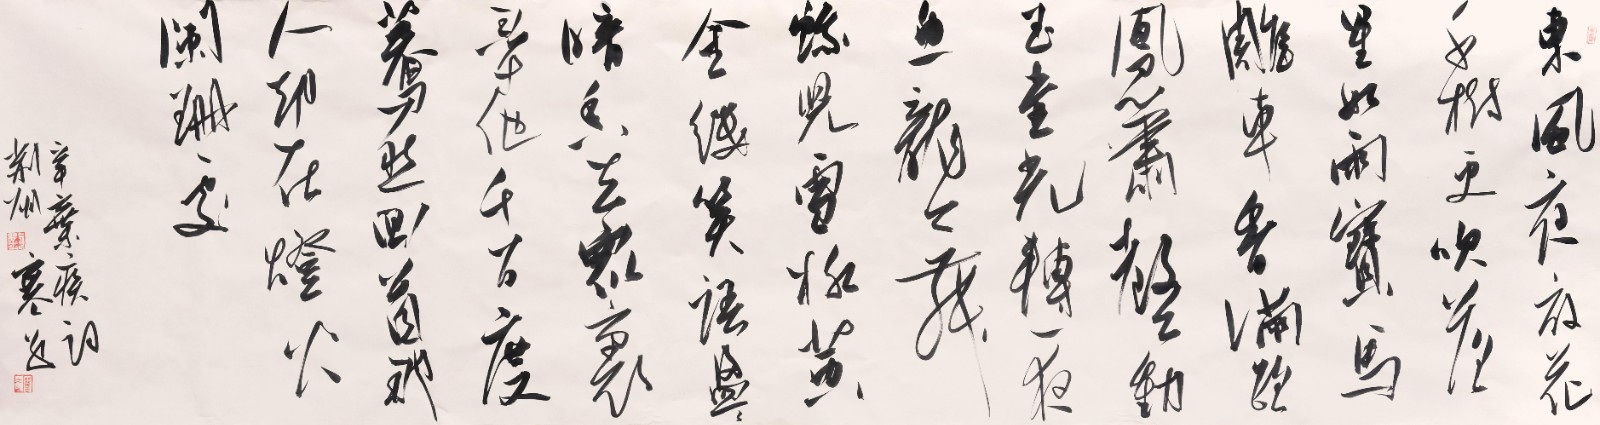 東風夜放花
千樹更吹落
星如雨寶馬
雕車香滿路
鳳簫聲動
玉壺光轉一夜
魚龍舞
蛾兒雪柳黃
金縷笑語盈
暗香去眾裏
尋他千百度
驀然回首那
人却在燈火
闌珊處
辛棄疾詞
荊州